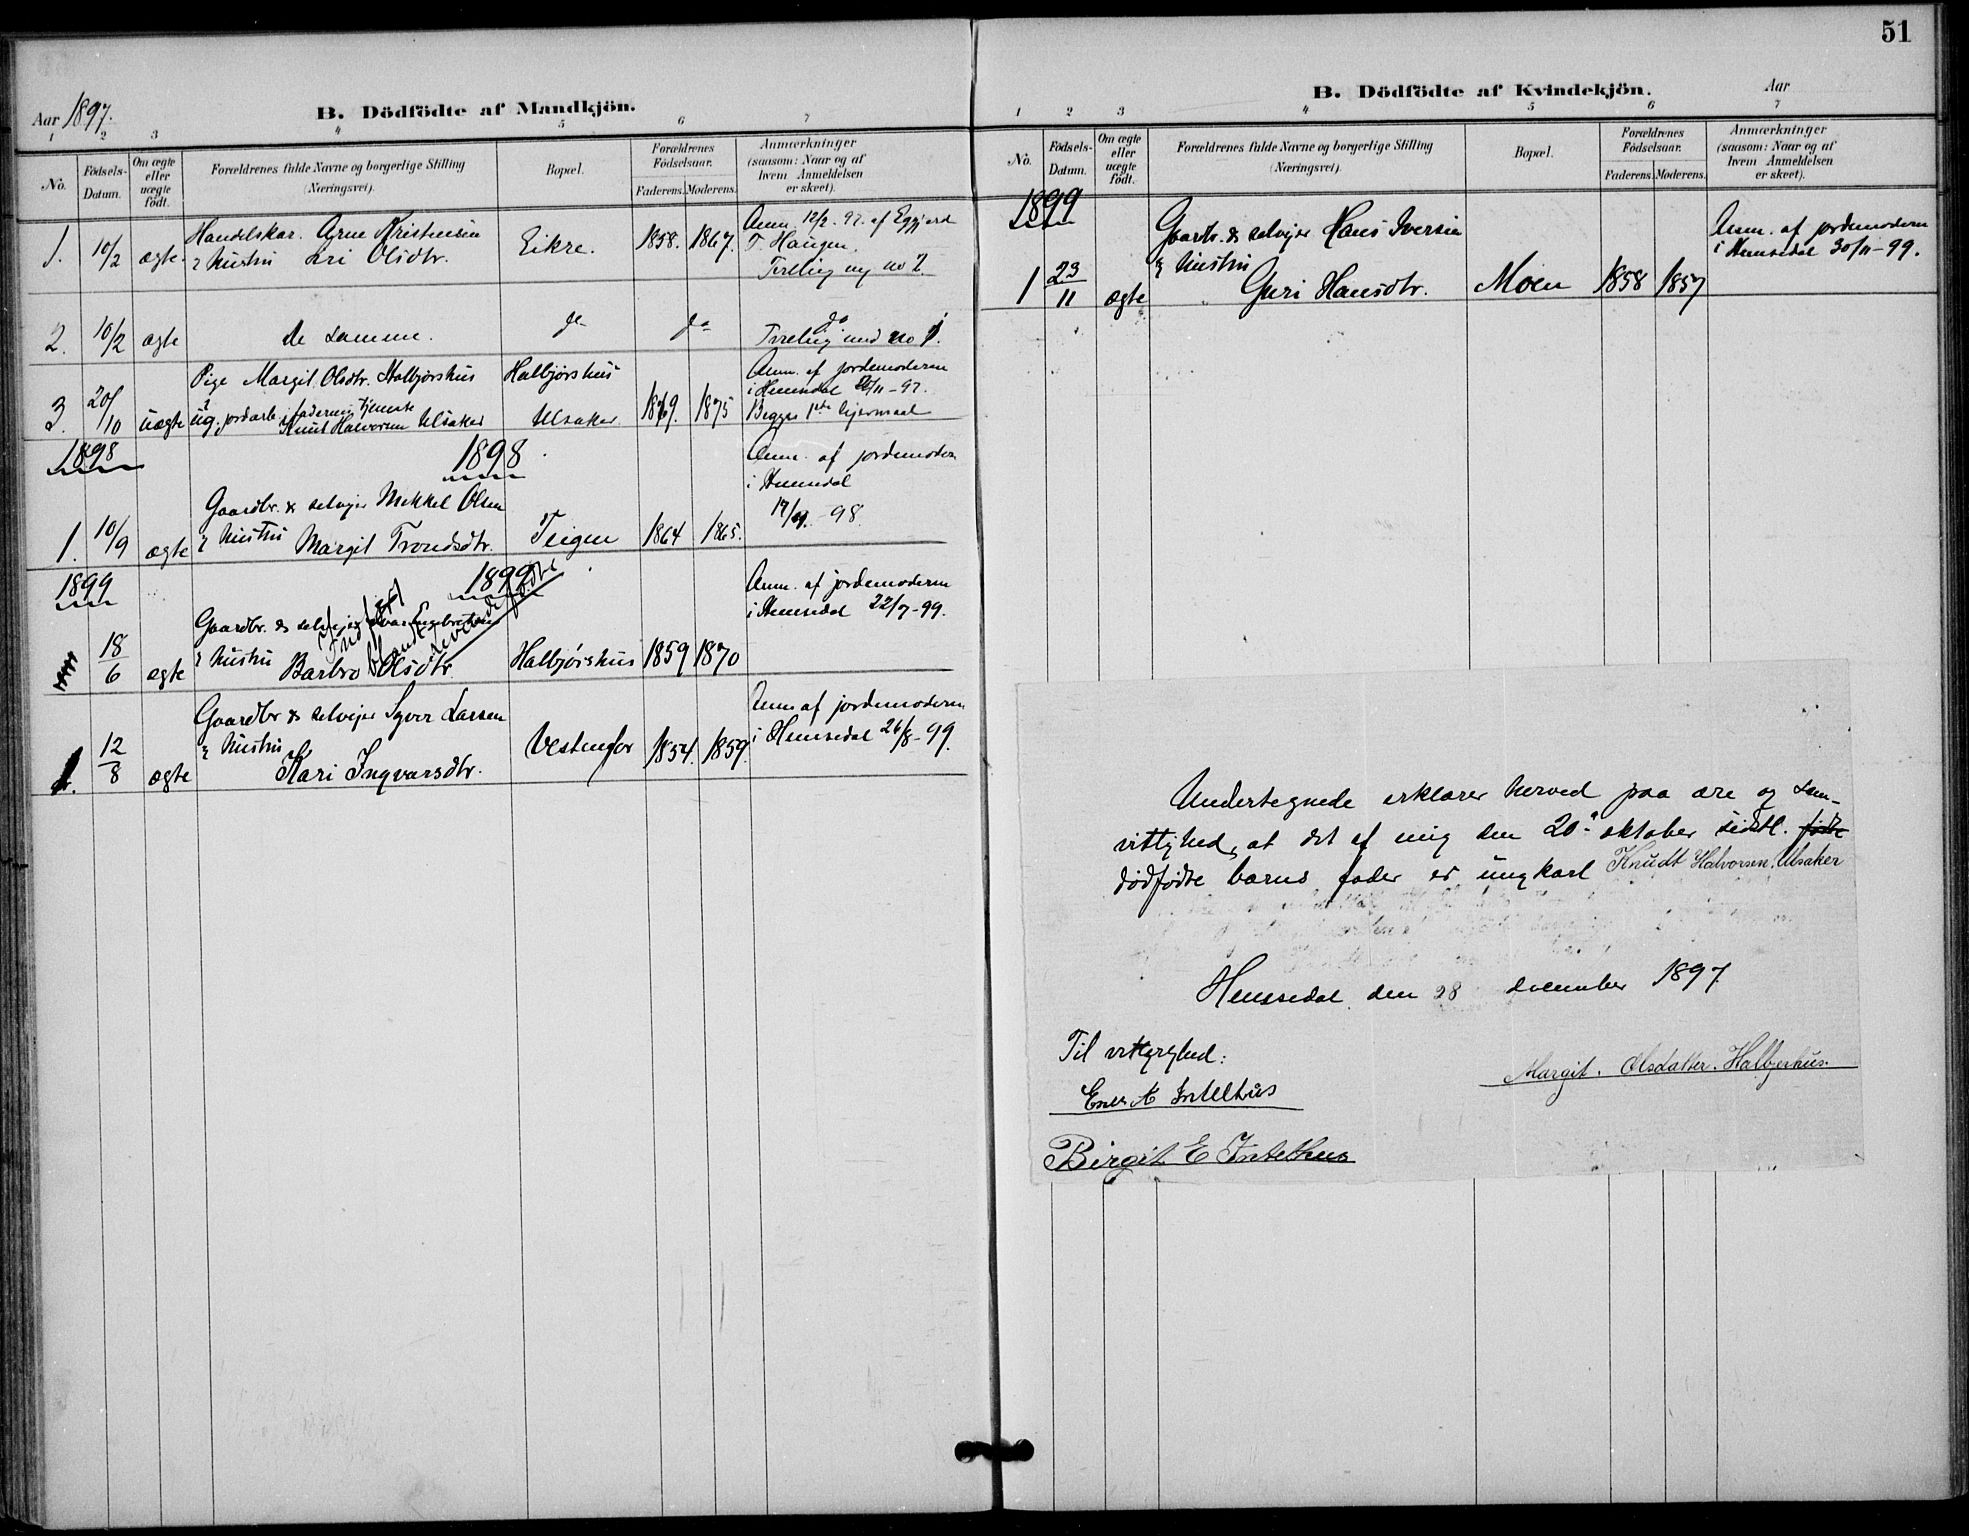 51
Aar 1897.
B. Dödfödte af Mandkjön.
1 2 3 4 5 6 7
No.
Födsels-
Datum.
Om ægte
eller
uægte
födt.
Forældrenes fulde Navne og borgerlige Stilling
(Næringsvei).
Bopæl.
Forældrenes
Födselsaar.
Faderens. Moderens.
Anmærkninger
(saasom: Naar og af
hvem Anmeldelsen
er skeet).
1. 10/2 ægte. Handelskar. Arne Kristensen
& hustru Olsdtr. Eikre. 1858. 1867.
Anm. 12/2. 97. af
T. Haugen.
2. 10/2 ægte de samme. do do do
Tvilling med no 1.
3. 20/10 uægte Pige Margit Olsdtr. Halbjørshus Halbjørshus
ug. jordarb. i faderens tjeneste
Knut Halvorsen Ulsaker Ulsaker 1869. 1875
Anm. af jordemoderen
i Hemsedal /11-97.
Begges 1ste leiermaal
1898
1898
1. 10/9 ægte Gaardbr. & selvejer Mikkel Olsen
& hustru Margit Trondsdtr. Teigen 1864 1865.
Anm. af jordemoderen
i Hemsedal
- 98.
1899
1899
18/6 ægte Gaardbr. & selvejer
& hustru Barbro Olsdtr. Halbjørshus 1859 1870
Anm. af jordemoderen
i Hemsedal 22/7-99.
Indført
blandt levendefødte
1. 12/8 ægte Gaardbr & selvejer Syver Larsen
& hustru
Kari Ingvarsdtr. Vestenfor 1854. 1859.
Anm af jordemoderen
i Hemsedal 26/8-99.
B. Dödfödte af Kvindekjön.
Aar
1 2 3 4 5 6 7
No.
Födsels-
Datum.
Om ægte
eller
uægte
födt.
Forældrenes fulde Navne og borgerlige Stilling
(Næringsvei).
Bopæl.
Forældrenes
Födselsaar.
Faderens. Moderens.
Anmærkninger
(saasom: Naar og af
hvem Anmeldelsen
er skeet).
1899
1 23/11 ægte Gaardbr. & selvejer Hans Iversen
& hustru
Guri Hansdtr. Moen 1858 1857
Anm. af jordemoderen
i Hemsedal 30/11-99.
Undertegnede erklærer herved paa ære og sam-
vittighed, at det af mig den 20de oktober sidstl. fødte
dødfødte barns fader er ungkarl Knudt Halvorsen Ulsaker
Hemsedal den 28 december 1897.
Til vitterlighed:
Margit. Olsdatter. Halbjerhus.
Birgit E Intelhus